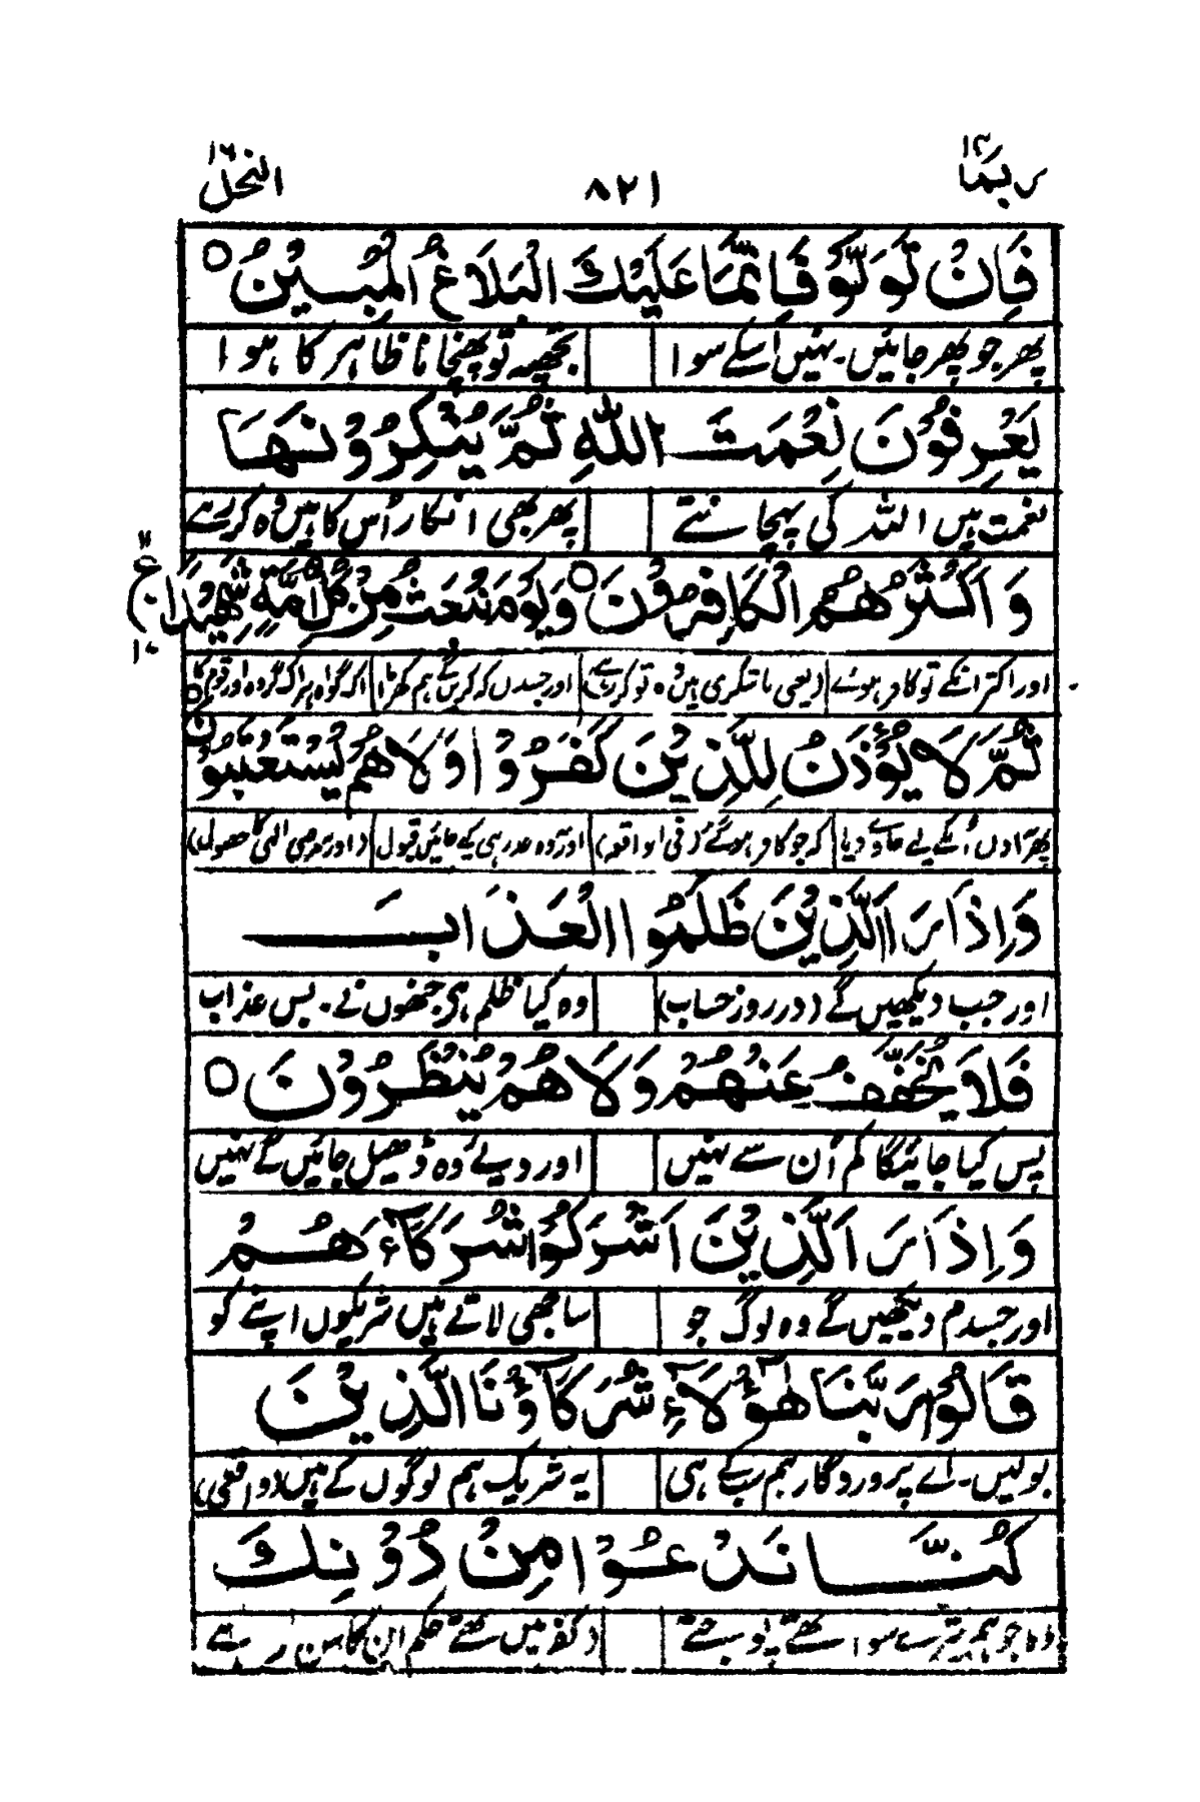 ربما ١٤ ٨٢١ النحل ١٦
فَاِنْ تَوَلَّوْ فَاِنَّمَا عَلَيْكَ الْبَلَاغُ الْمُبِيْنُ ○
پھر جو پھر جائیں۔ نہیں اسکے سوا تجھپہ تو پھنچانا ظاہر کا ہوا
يَعْرِفُوْنَ نِعْمَتَ اللّٰهِ ثُمَّ يُنْكِرُوْنَهَا
نعمت ہیں اللہ کی پہچانتے پھر بھی انکار اُس کا ہیں وہ کر رہے
وَ اَكْثَرُهُمُ الْكَافِرُوْنَ ○ وَيَوْمَ نَبْعَثُ مِنْ كُلِّ اُمَّةٍ شَهِيْدًا ع
١١
١٠
اور اکثر انکے تو کافر ہوئے (یعنی ناشکری ہیں وہ تو کر رہے) اور جسدن کہ کرینگے ہم کھڑا اک گواہ ہر اک گروہ اور قوم کا
ثُمَّ لَا يُؤْذَنُ لِلَّذِيْنَ كَفَرُوْا وَلَا هُمْ يُسْتَعْتَبُوْنَ ○
کہ جو کافر ہوگئے (فی الواقعہ) قبول (اور مرضی الٰہی کا حصول)
وَاِذَا رَاَ الَّذِيْنَ ظَلَمُوا الْعَذَابَ
اور جب دیکھیں گے (در روز حساب) وہ کیا ظلم ہی جنھوں نے۔ بس عذاب
فَلَا يُخَفَّفُ عَنْهُمْ وَلَا هُمْ يُنْظَرُوْنَ ○
پس کیا جائیگا کم اُن سے نہیں اور دیئے وہ ڈھیل جائیں گے نہیں
وَاِذَا رَاَ الَّذِيْنَ اَشْرَكُوْا شُرَكَآءَهُمْ
اور جسدم دیکھیں گے وہ لوگ جو ساجھی لاتے ہیں شریکوں اپنے کو
قَالُوْا رَبَّنَا هٰٓؤُلَآءِ شُرَكَآؤُنَا الَّذِيْنَ
بولیں۔ اے پروردگار ہم سبکے ہی یہ شریک ہم لوگوں کے ہیں (واقعی)
كُنَّا نَدْعُوْا مِنْ دُوْنِكَ
جو ہم تیرے سوا تھے پوجتے